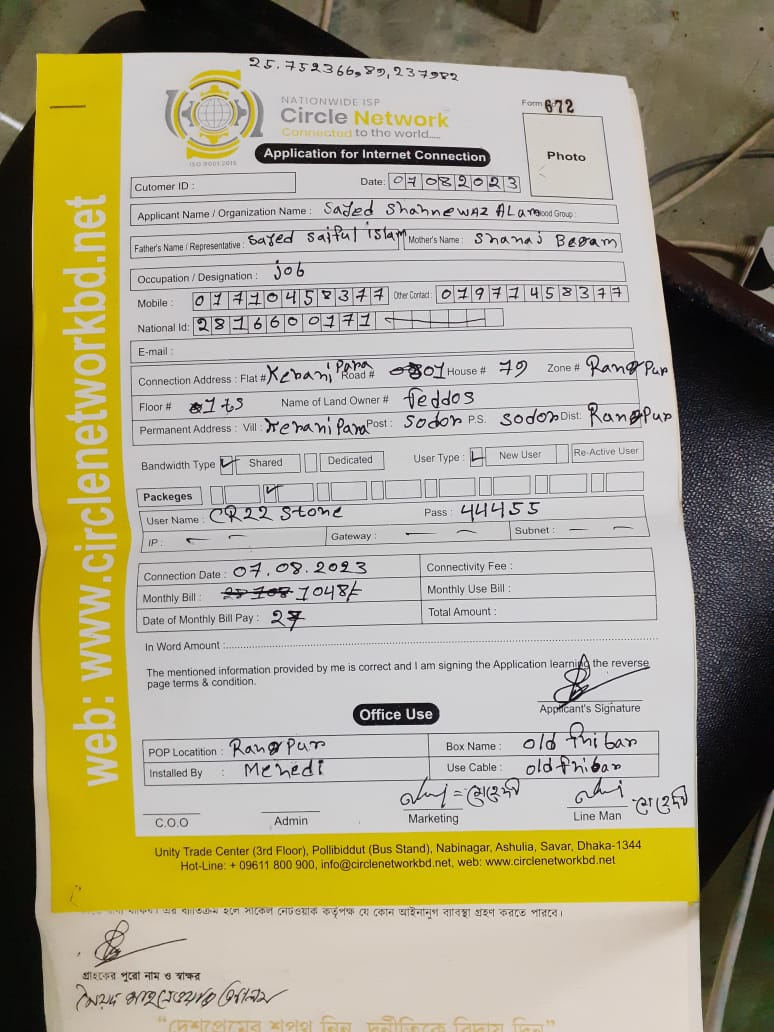 25.752366,89,237982
NATIONWIDE ISP
Circle Network
Connected to the world.....
ISO 9001:2015
Form 672
Application for Internet Connection
Photo
Cutomer ID :
Date: 07082023
Applicant Name / Organization Name : Sajed Shahnewaz ALam ood Group :
Father's Name / Representative : Sajed Saiful islam Mother's Name : Shanaj Begam
Occupation / Designation : job
Mobile : 01710458377 Other Contact : 01971458377
National Id: 2816600171
E-mail :
Connection Address : Flat # Kerani Para Road # 01 House # 79 Zone # Rangpur
Floor # 1ts Name of Land Owner # feddos
Permanent Address : Vill : Kerani Para Post : Sodor P.S. Sodor Dist: Rangpur
Bandwidth Type Shared Dedicated User Type : New User Re-Active User
Packeges
User Name : CR22 Stone Pass : 44455
IP : Gateway : Subnet :
Connection Date : 07.08.2023 Connectivity Fee :
Monthly Bill : 1048/- Monthly Use Bill :
Date of Monthly Bill Pay : 27 Total Amount :
In Word Amount :
The mentioned information provided by me is correct and I am signing the Application learning the reverse
page terms & condition.
Applicant's Signature
Office Use
POP Locatition : Rangpur Box Name : old fhibar
Installed By : Mehedi Use Cable : old fhibar
= মেহেদী
- মেহেদী
C.O.O Admin Marketing Line Man
Unity Trade Center (3rd Floor), Pollibiddut (Bus Stand), Nabinagar, Ashulia, Savar, Dhaka-1344
Hot-Line: + 09611 800 900, info@circlenetworkbd.net, web: www.circlenetworkbd.net
web: www.circlenetworkbd.net
ব্যতিক্রম হলে সার্কেল নেটওয়ার্ক কর্তৃপক্ষ যে কোন আইনানুগ ব্যাবস্থা গ্রহণ করতে পারবে।
গ্রাহকের পুরো নাম ও স্বাক্ষর
সৈয়দ শাহনেওয়াজ আলম
"দেশপ্রেমের শপথ নিন, দুর্নীতিকে বিদায় দিন"